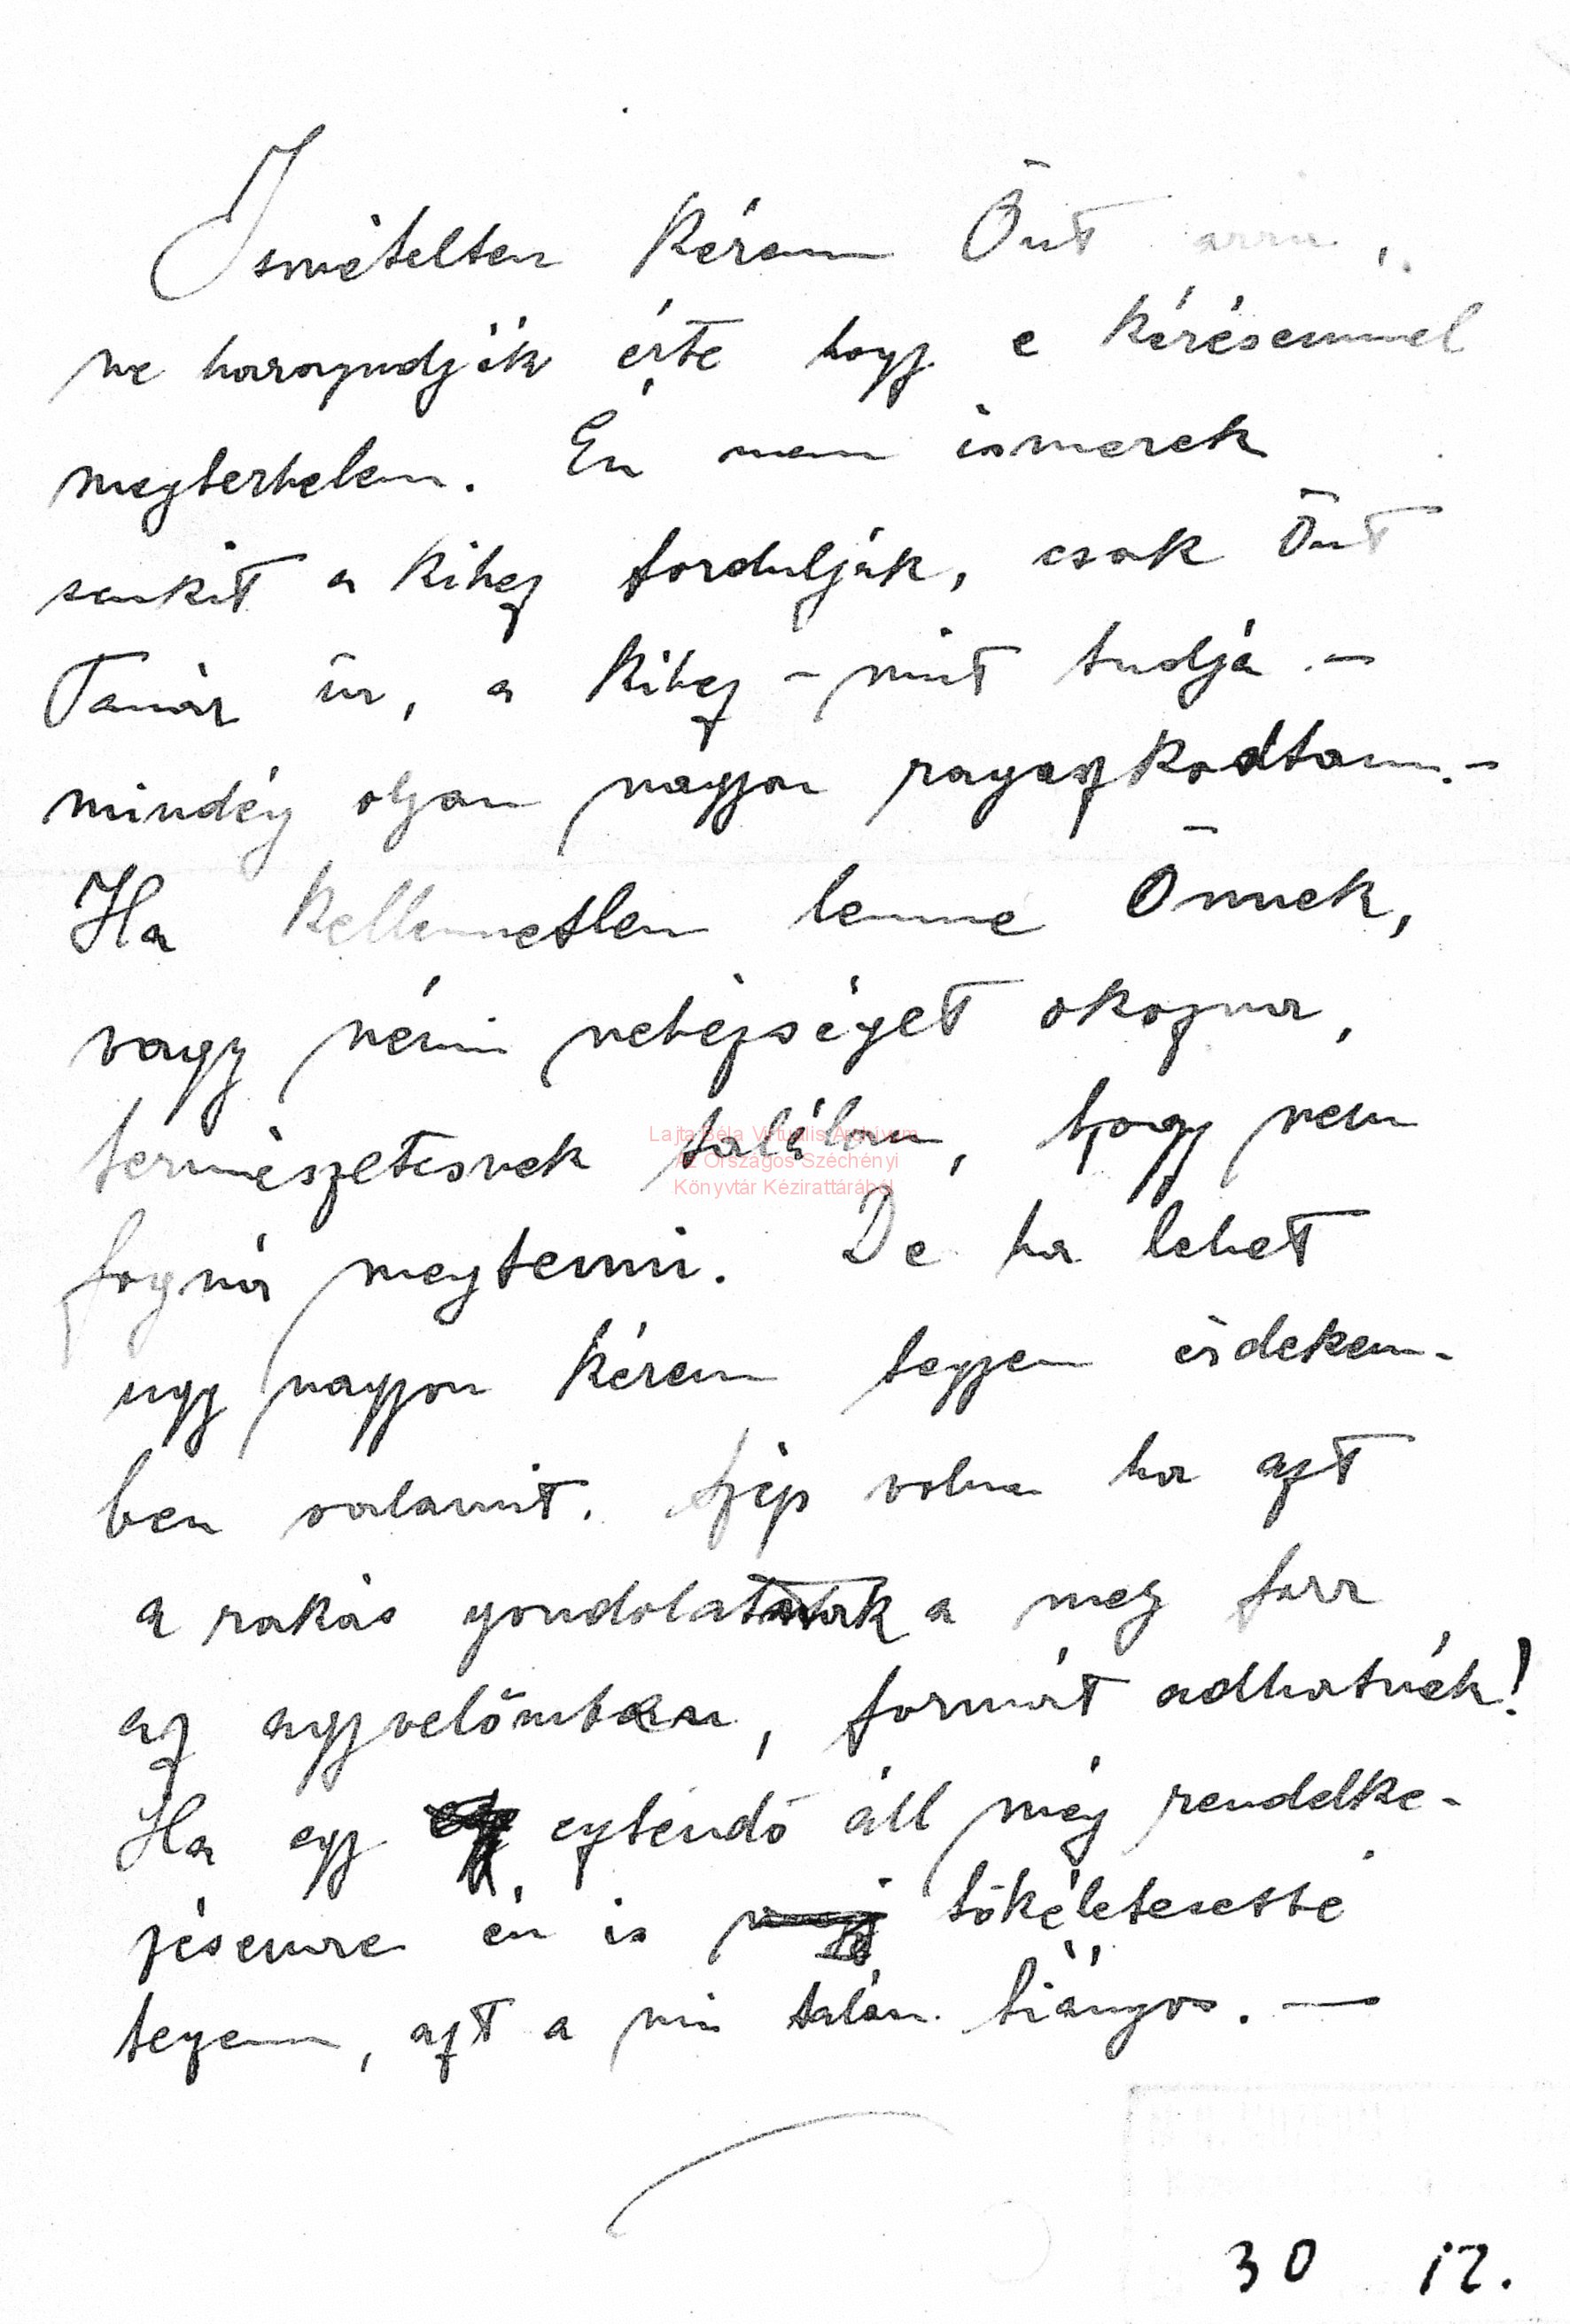 Ismételten kérem Önt arra,
ne haragudják érte hogy e kérésemmel
megterhelem. Én nem ismerek
senkit a kihez forduljak, csak Önt
Tanár úr, a kihez – mint tudja –
mindég olyan nagyon ragaszkodtam. –
Ha kellemetlen lenne Önnek,
vagy némi nehézséget okozna,
természetesnek találom, hogy nem
fogná megtenni. De ha lehet
ugy nagyon kérem tegyen érdekem-
ben valamit. Szép volna ha azt
a rakás gondolatnak a mely forr
az agyvelőmben, formát adhatnék!
Ha egy esztendő áll még rendelke-
zésemre én is tökéletesebbé
teszem, azt a mi talán hiányos. —
Lajta Béla Virtuális Archívum
Az Országos Széchényi
Könyvtár Kézirattárából
30 12.